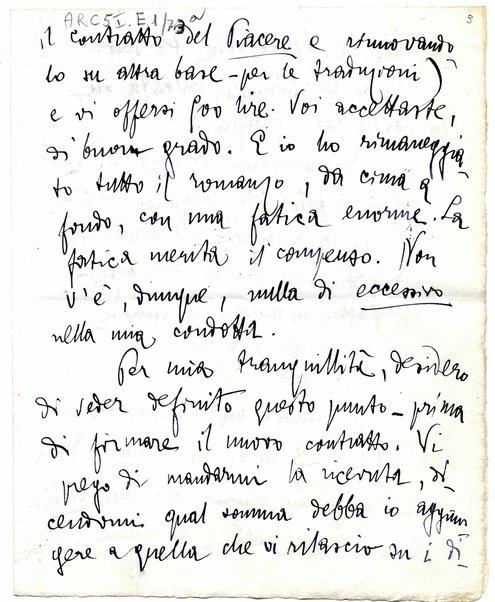 ARC5I.E1/73a
3
il contratto del Piacere e rinnovando
lo su altra base – per le traduzioni)
e vi offersi 500 lire. Voi accettaste,
di buon grado. E io ho rimaneggia-
to tutto il romanzo, da cima a
fondo, con una fatica enorme. La
fatica merita il compenso. Non
v'è, dunque, nulla di eccessivo
nella mia condotta.
Per mia tranquillità, desidero
di veder definito questo punto – prima
di firmare il nuovo contratto. Vi
prego di mandarmi la ricevuta, di
cendomi qual somma debba io aggiun
gere a quella che vi rilascio su i di-